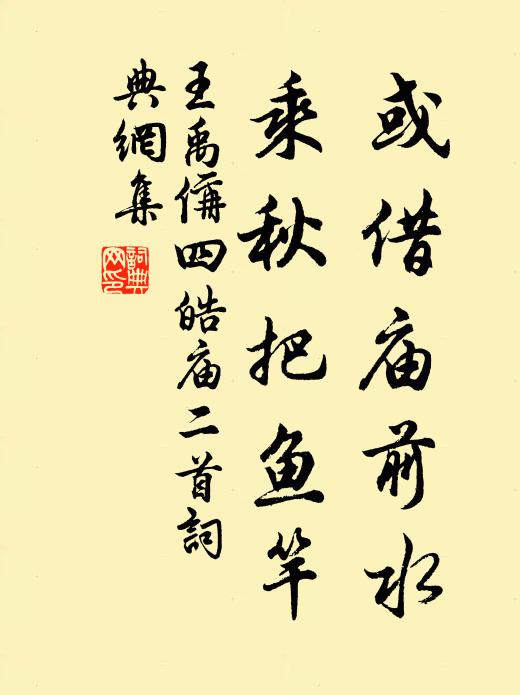 或借庙前水
乘秋把鱼竿
王禹偁四皓庙二首詞
典網集
詞典
网印